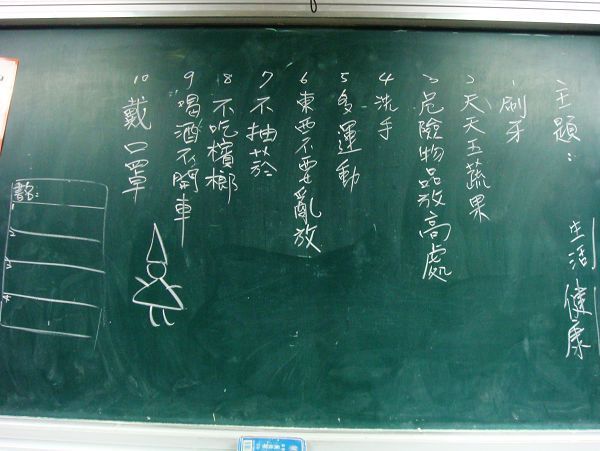 主題：
生活健康
1 刷牙
2 天天五蔬果
3 危險物品放高處
4 洗手
5 多運動
6 東西不要亂放
7 不抽菸
8 不吃檳榔
9 喝酒不開車
10 戴口罩